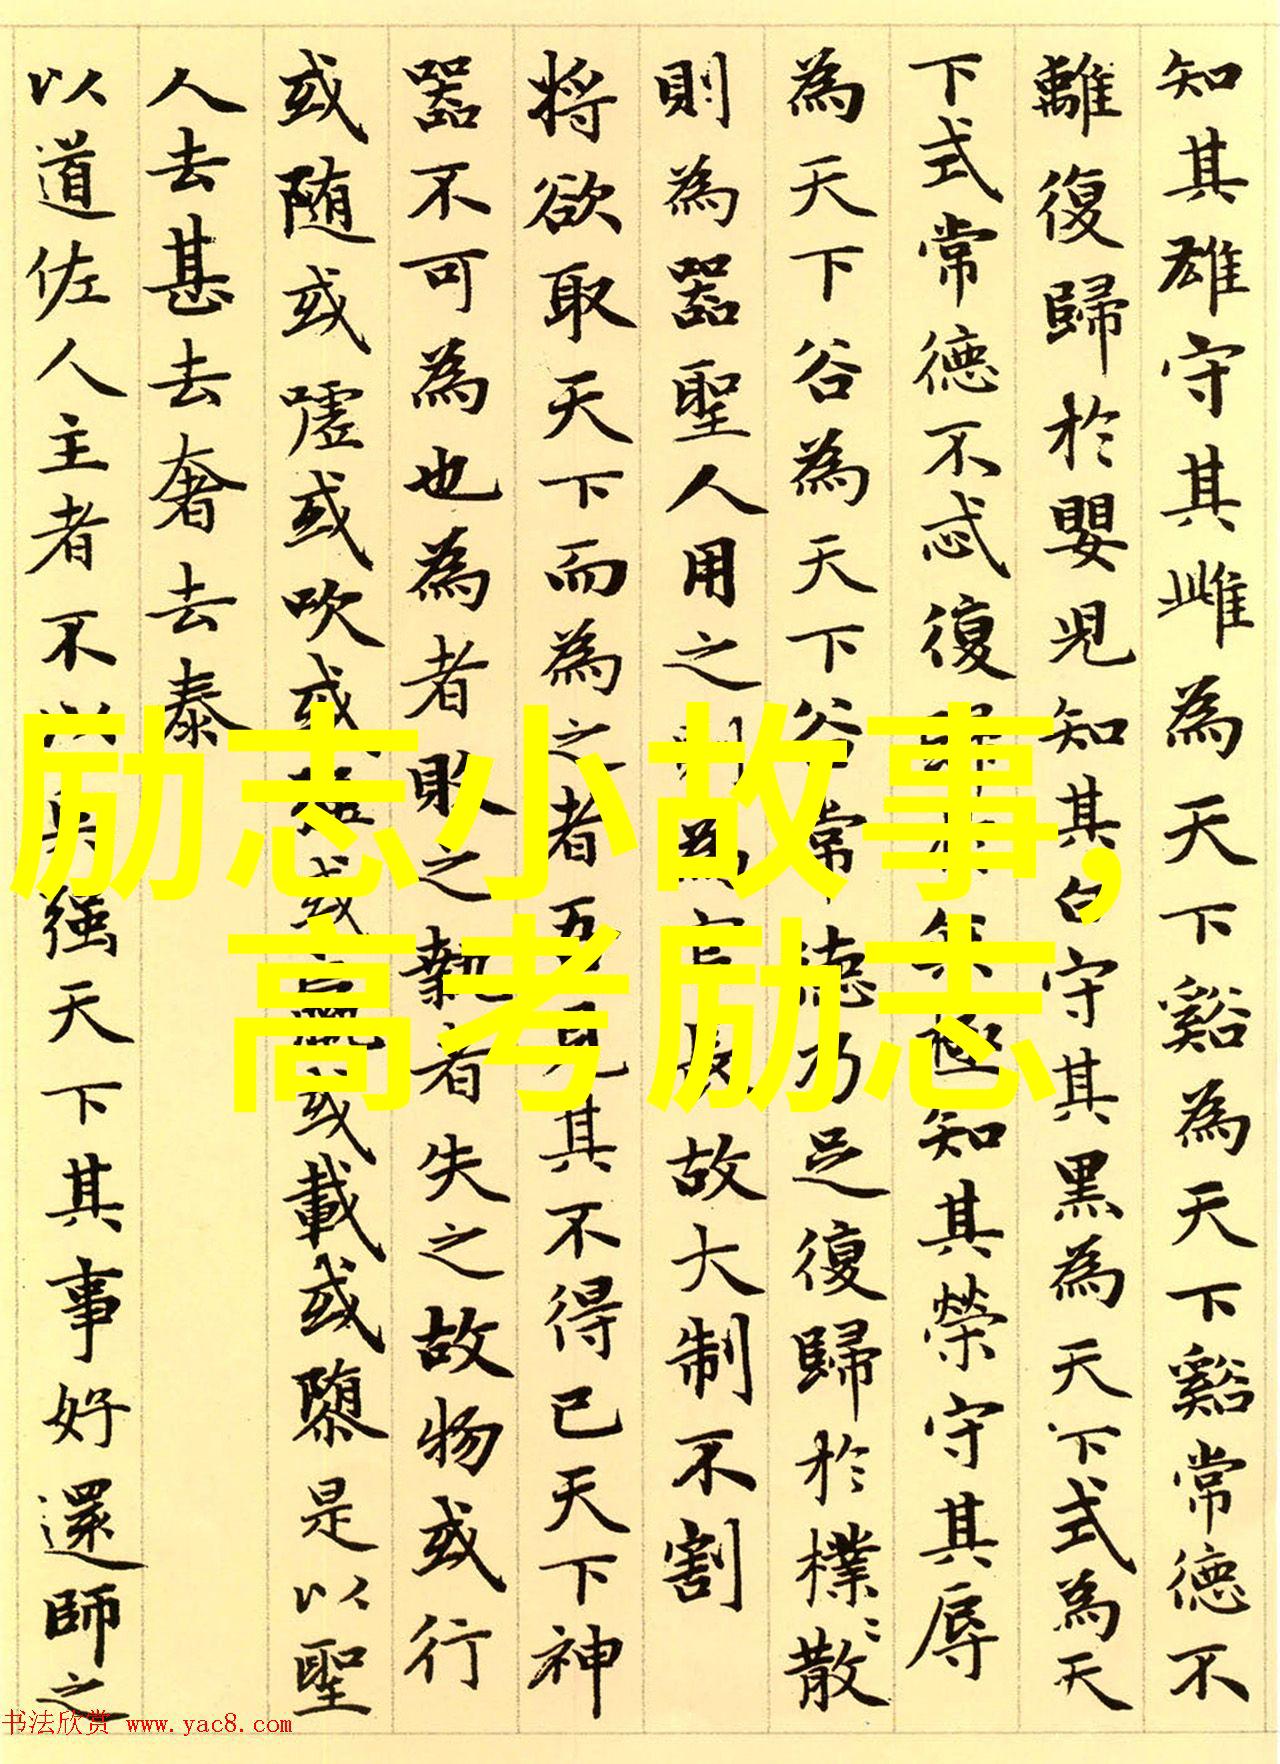 知其雄守其雌為天下谿為天下谿常德不
離復歸於嬰兒知其白守其黑為天下式為天
下式常德不忒復歸於無極知其榮守其辱
為天下谷為天下谷常德乃足復歸於樸〻散
則為器聖人用之則為官長故大制不割
将欲取天下而為之者吾見其不得已天下神
器不可為也為者敗之執者失之故物或行
或随或嘘或吹或强或羸或載或隳是以聖
人去甚去奢去泰
以道佐人主者不以兵强天下其事好還師之
励志小故事,
高考励志
书法欣赏 www.yac8.com